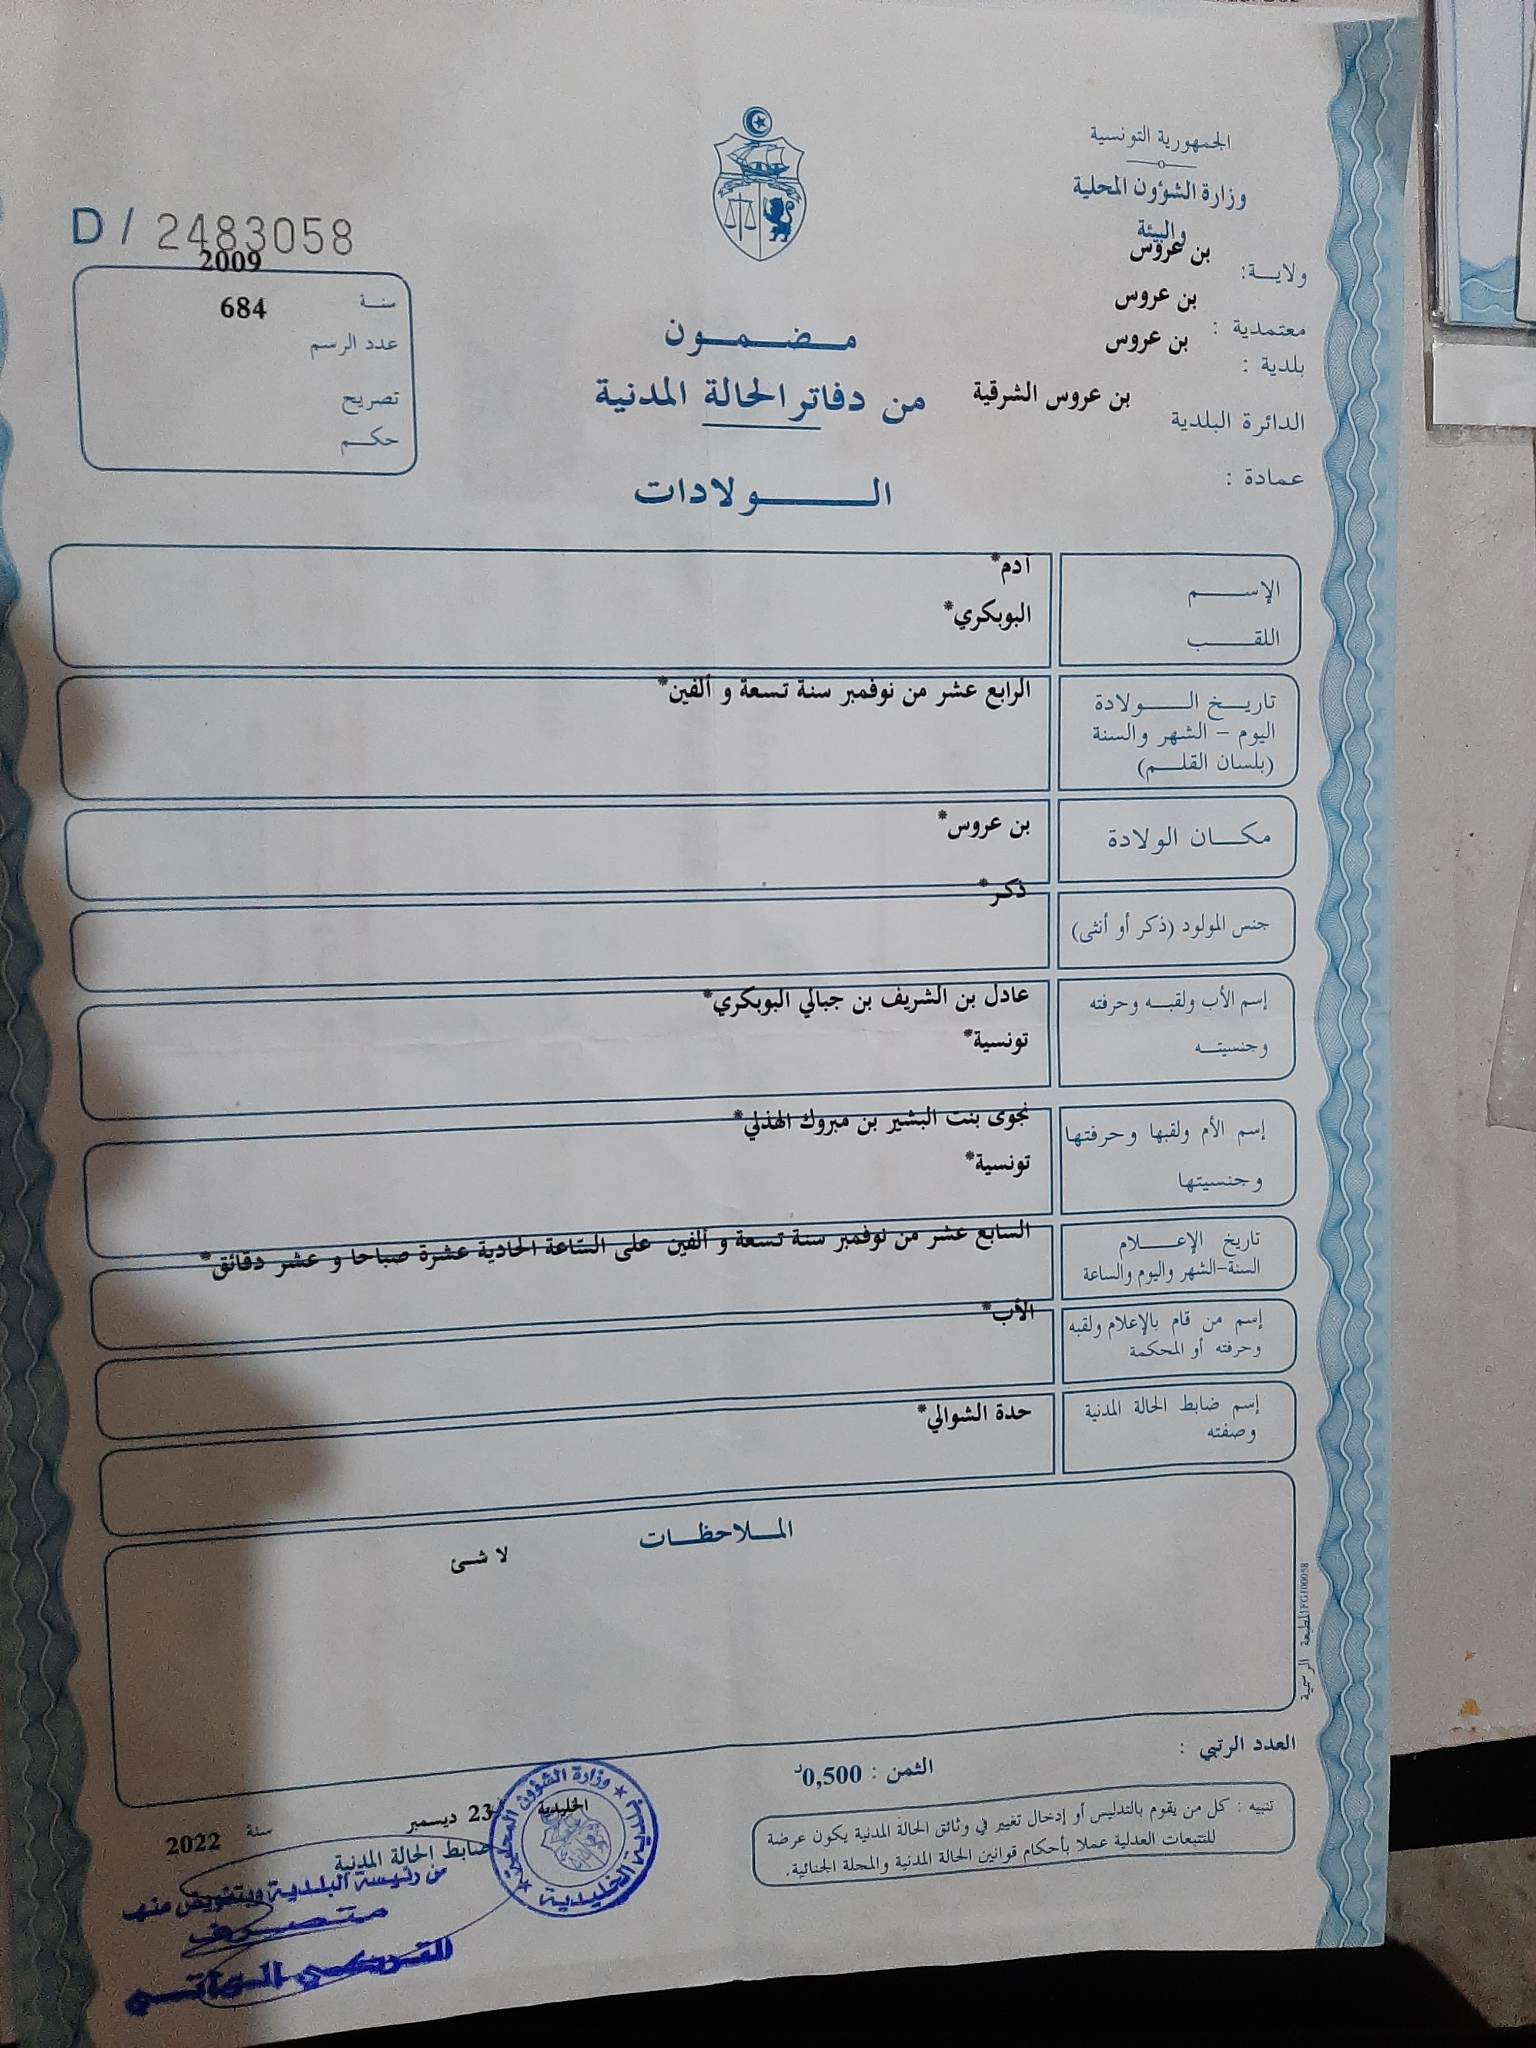 الجمهورية التونسية
وزارة الشؤون المحلية
والبيئة
ولاية: بن عروس
معتمدية : بن عروس
بلدية : بن عروس
الدائرة البلدية بن عروس الشرقية
عمادة :
D / 2483058
سنة 2009
عدد الرسم 684
تصريح
حكم
مضمون
من دفاتر الحالة المدنية
الولادات
الإسم آدم*
اللقب البوبكري*
تاريخ الولادة الرابع عشر من نوفمبر سنة تسعة و ألفين*
اليوم - الشهر والسنة
(بلسان القلم)
مكان الولادة بن عروس*
جنس المولود (ذكر أو أنثى) ذكر*
إسم الأب ولقبه وحرفته عادل بن الشريف بن جبالي البوبكري*
وجنسيته تونسية*
إسم الأم ولقبها وحرفتها نجوى بنت البشير بن مبروك الهذلي*
وجنسيتها تونسية*
تاريخ الإعلام السابع عشر من نوفمبر سنة تسعة و ألفين على السّاعة الحادية عشرة صباحا و عشر دقائق*
السنة-الشهر واليوم والساعة
إسم من قام بالإعلام ولقبه الأب*
وحرفته أو المحكمة
إسم ضابط الحالة المدنية حدة الشوالي*
وصفته
الملاحظات
لا شئ
المطبعة الرسمية
العدد الرتبي :
الثمن : 0,500د
تنبيه : كل من يقوم بالتدليس أو إدخال تغيير في وثائق الحالة المدنية يكون عرضة
للتتبعات العدلية عملا بأحكام قوانين الحالة المدنية والمجلة الجنائية.
الخليدية 23 ديسمبر سنة 2022
ضابط الحالة المدنية
من رئيسة البلدية وبتفويض منها
متصرف
وزارة الشؤون المحلية
الخليدية